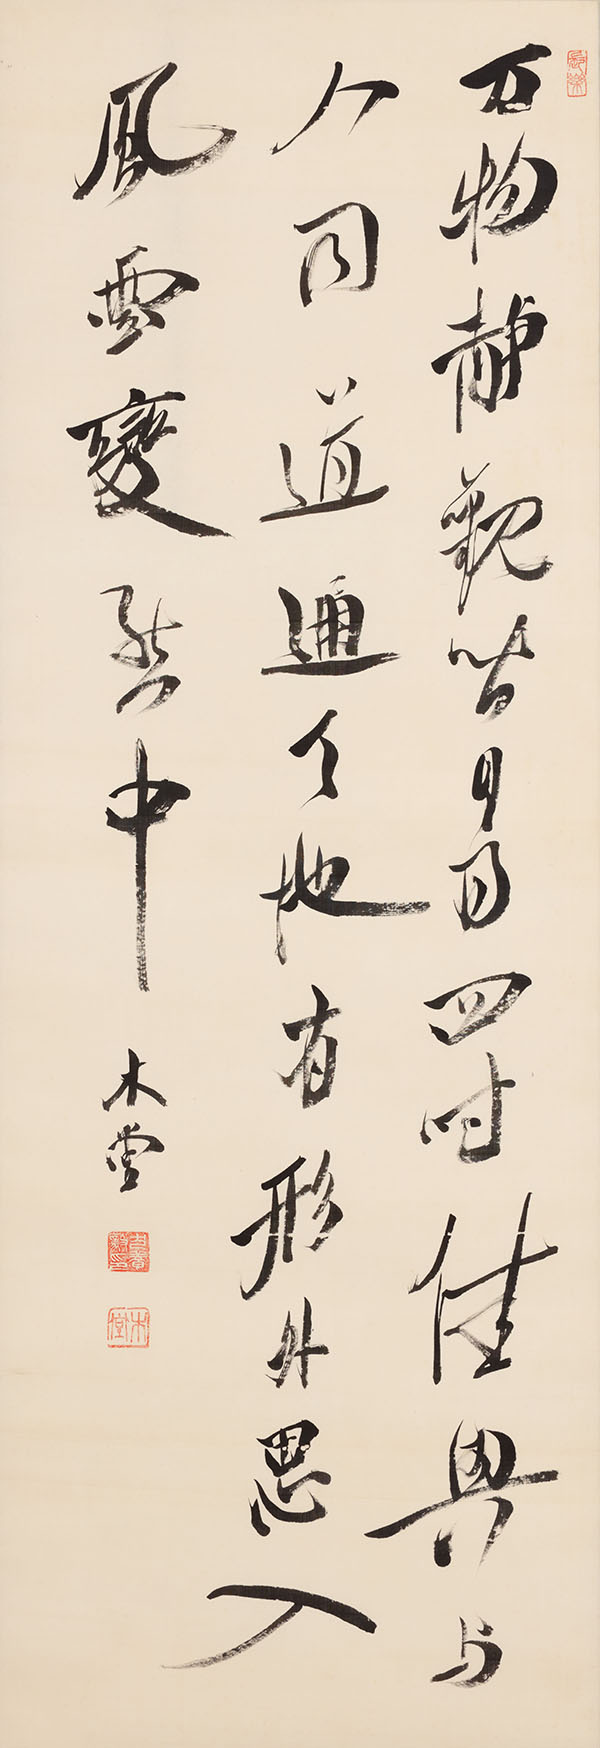 万物静観皆自得四時佳興与
人同道通天地有形外思入
風雲變態中
木堂
犬養毅印
木堂